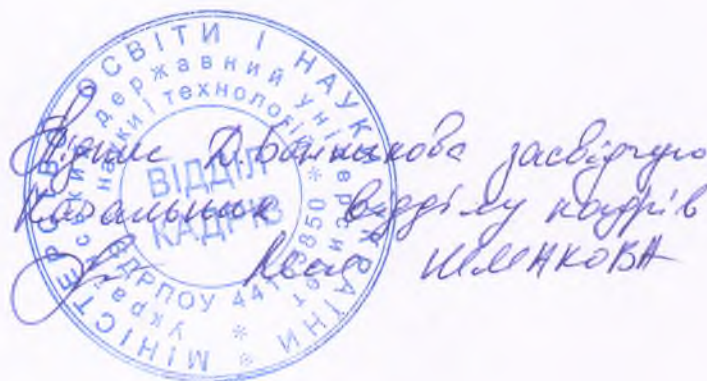 МІНІСТЕРСТВО ОСВІТИ І НАУКИ УКРАЇНИ
Український державний університет
науки і технологій
ВІДДІЛ
КАДРІВ
ЄДРПОУ 44165850
Підпис Д. Баннікова засвідчую
Начальник відділу кадрів
ШМАКОВА